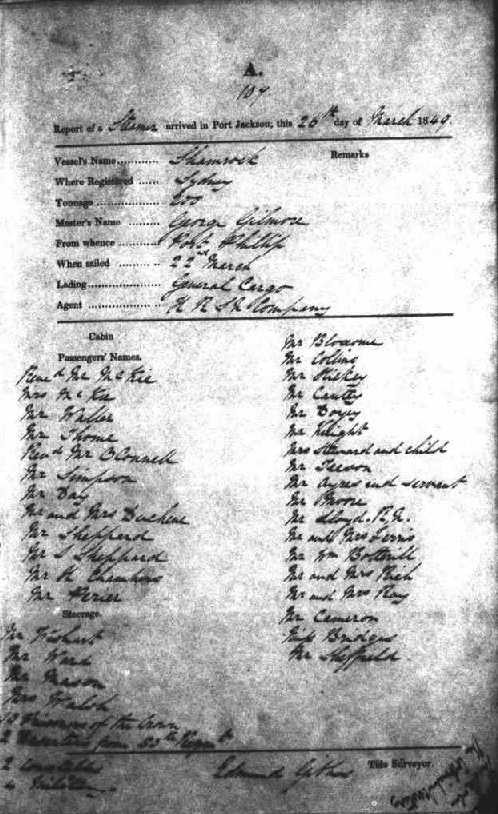 A.
107
Report of a Steamer arrived in Port Jackson, this 26th day of March 1849
Vessel's Name........... Shamrock Remarks
Where Registered ...... Sydney
Tonnage ............... 200
Master's Name ........ George Gilmore
From whence ........... Port Phillip
When sailed .......... 22nd March
Lading................. General Cargo
Agent ................. H R S N Company
Cabin
Passengers' Names.
Revd Mr McKie
Mrs McKie
Mr Waller
Mr Thome
Revd Mr O'Connell
Mr Simpson
Mr Day
Mr and Mrs Duchene
Mr Shepperd
Mr S Sheppard
Mr H Chambers
Mr
Steerage.
Mr Wishart
Mr Ward
Mr Mason
Mrs Walsh
Prisoners of the Crown
2 from Regmt
2 Constables
4 Military
Mr Bloxsome
Mr Collins
Mr Hickey
Mr
Mr Boyey
Mr Knight
Mrs Steward and child
Mr
Mr Ayres and Servant
Mr Moore
Mr Lloyd. R.N.
Mr and Mrs Ferris
Mr Wm Botterill
Mr and Mrs Rich
Mr and Mrs
Mr Cameron
Miss Bridges
Mr Sheffield
Edmund Tide Surveyor.